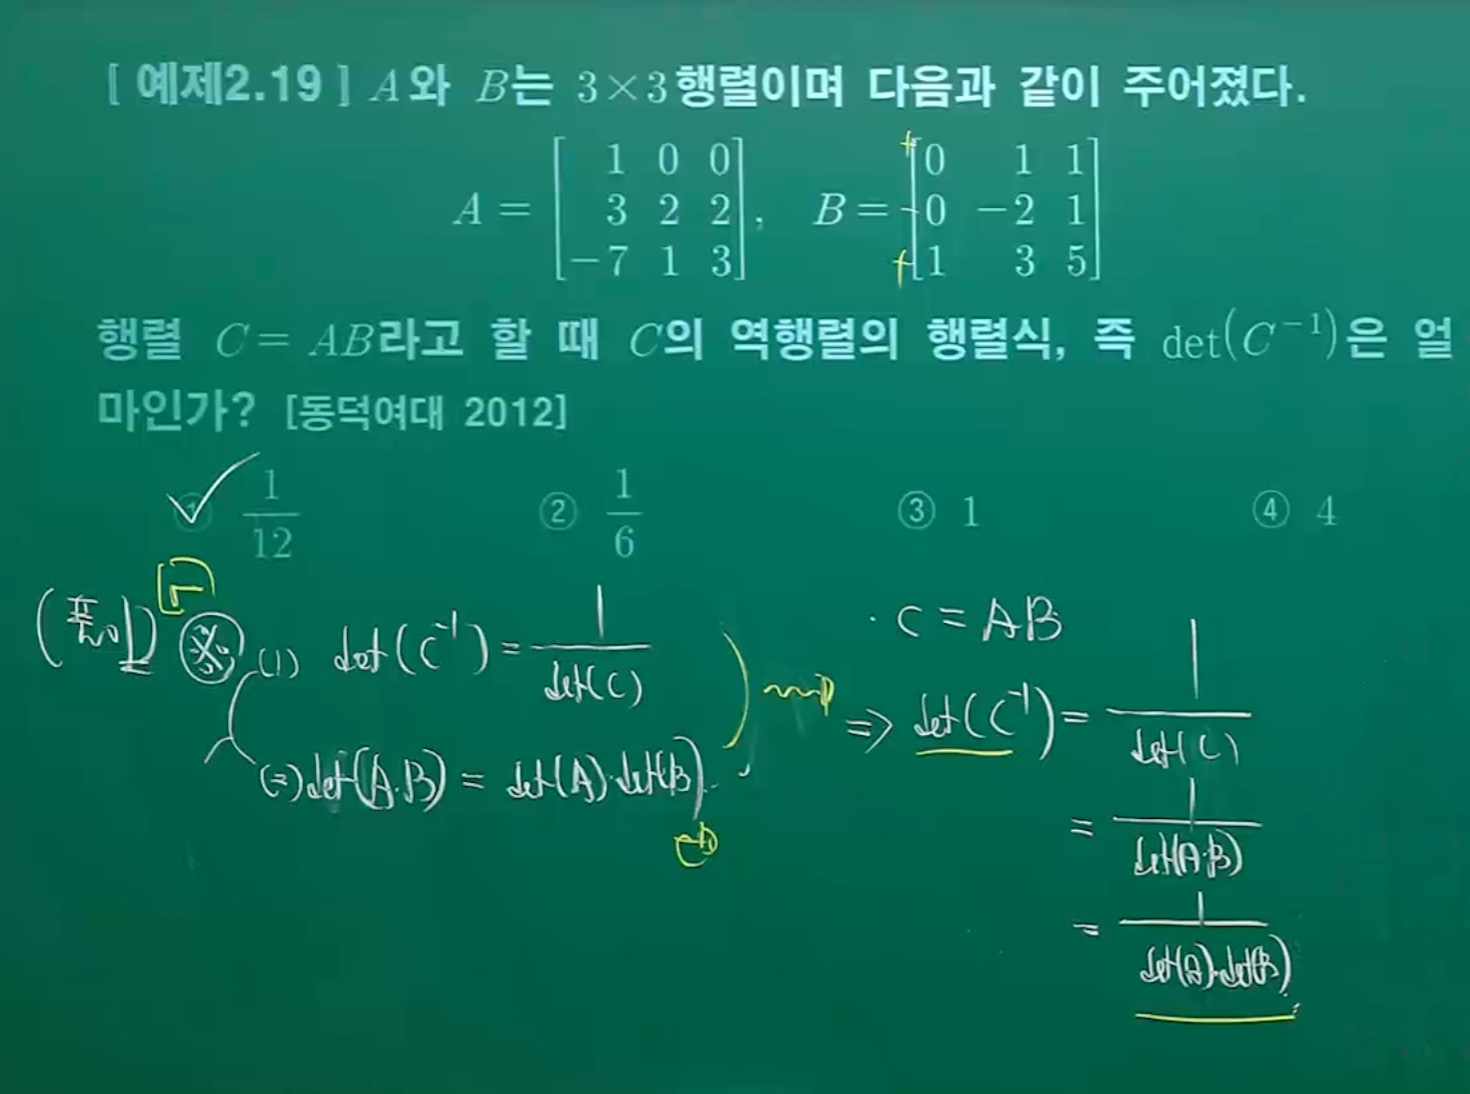 [ 예제2.19 ] A와 B는 3×3 행렬이며 다음과 같이 주어졌다.
A = [ 1 0 0 ; 3 2 2 ; −7 1 3 ], B = [ 0 1 1 ; 0 −2 1 ; 1 3 5 ]
+ − +
행렬 C = AB라고 할 때 C의 역행렬의 행렬식, 즉 det(C⁻¹)은 얼
마인가? [동덕여대 2012]
① 1/12 ② 1/6 ③ 1 ④ 4
(풀이) ※ (1) det(C⁻¹) = 1/det(C)
det(A·B) = det(A)·det(B)
· C = AB
⇒ det(C⁻¹) = 1/det(C)
= 1/det(A·B)
= 1/det(A)·det(B)